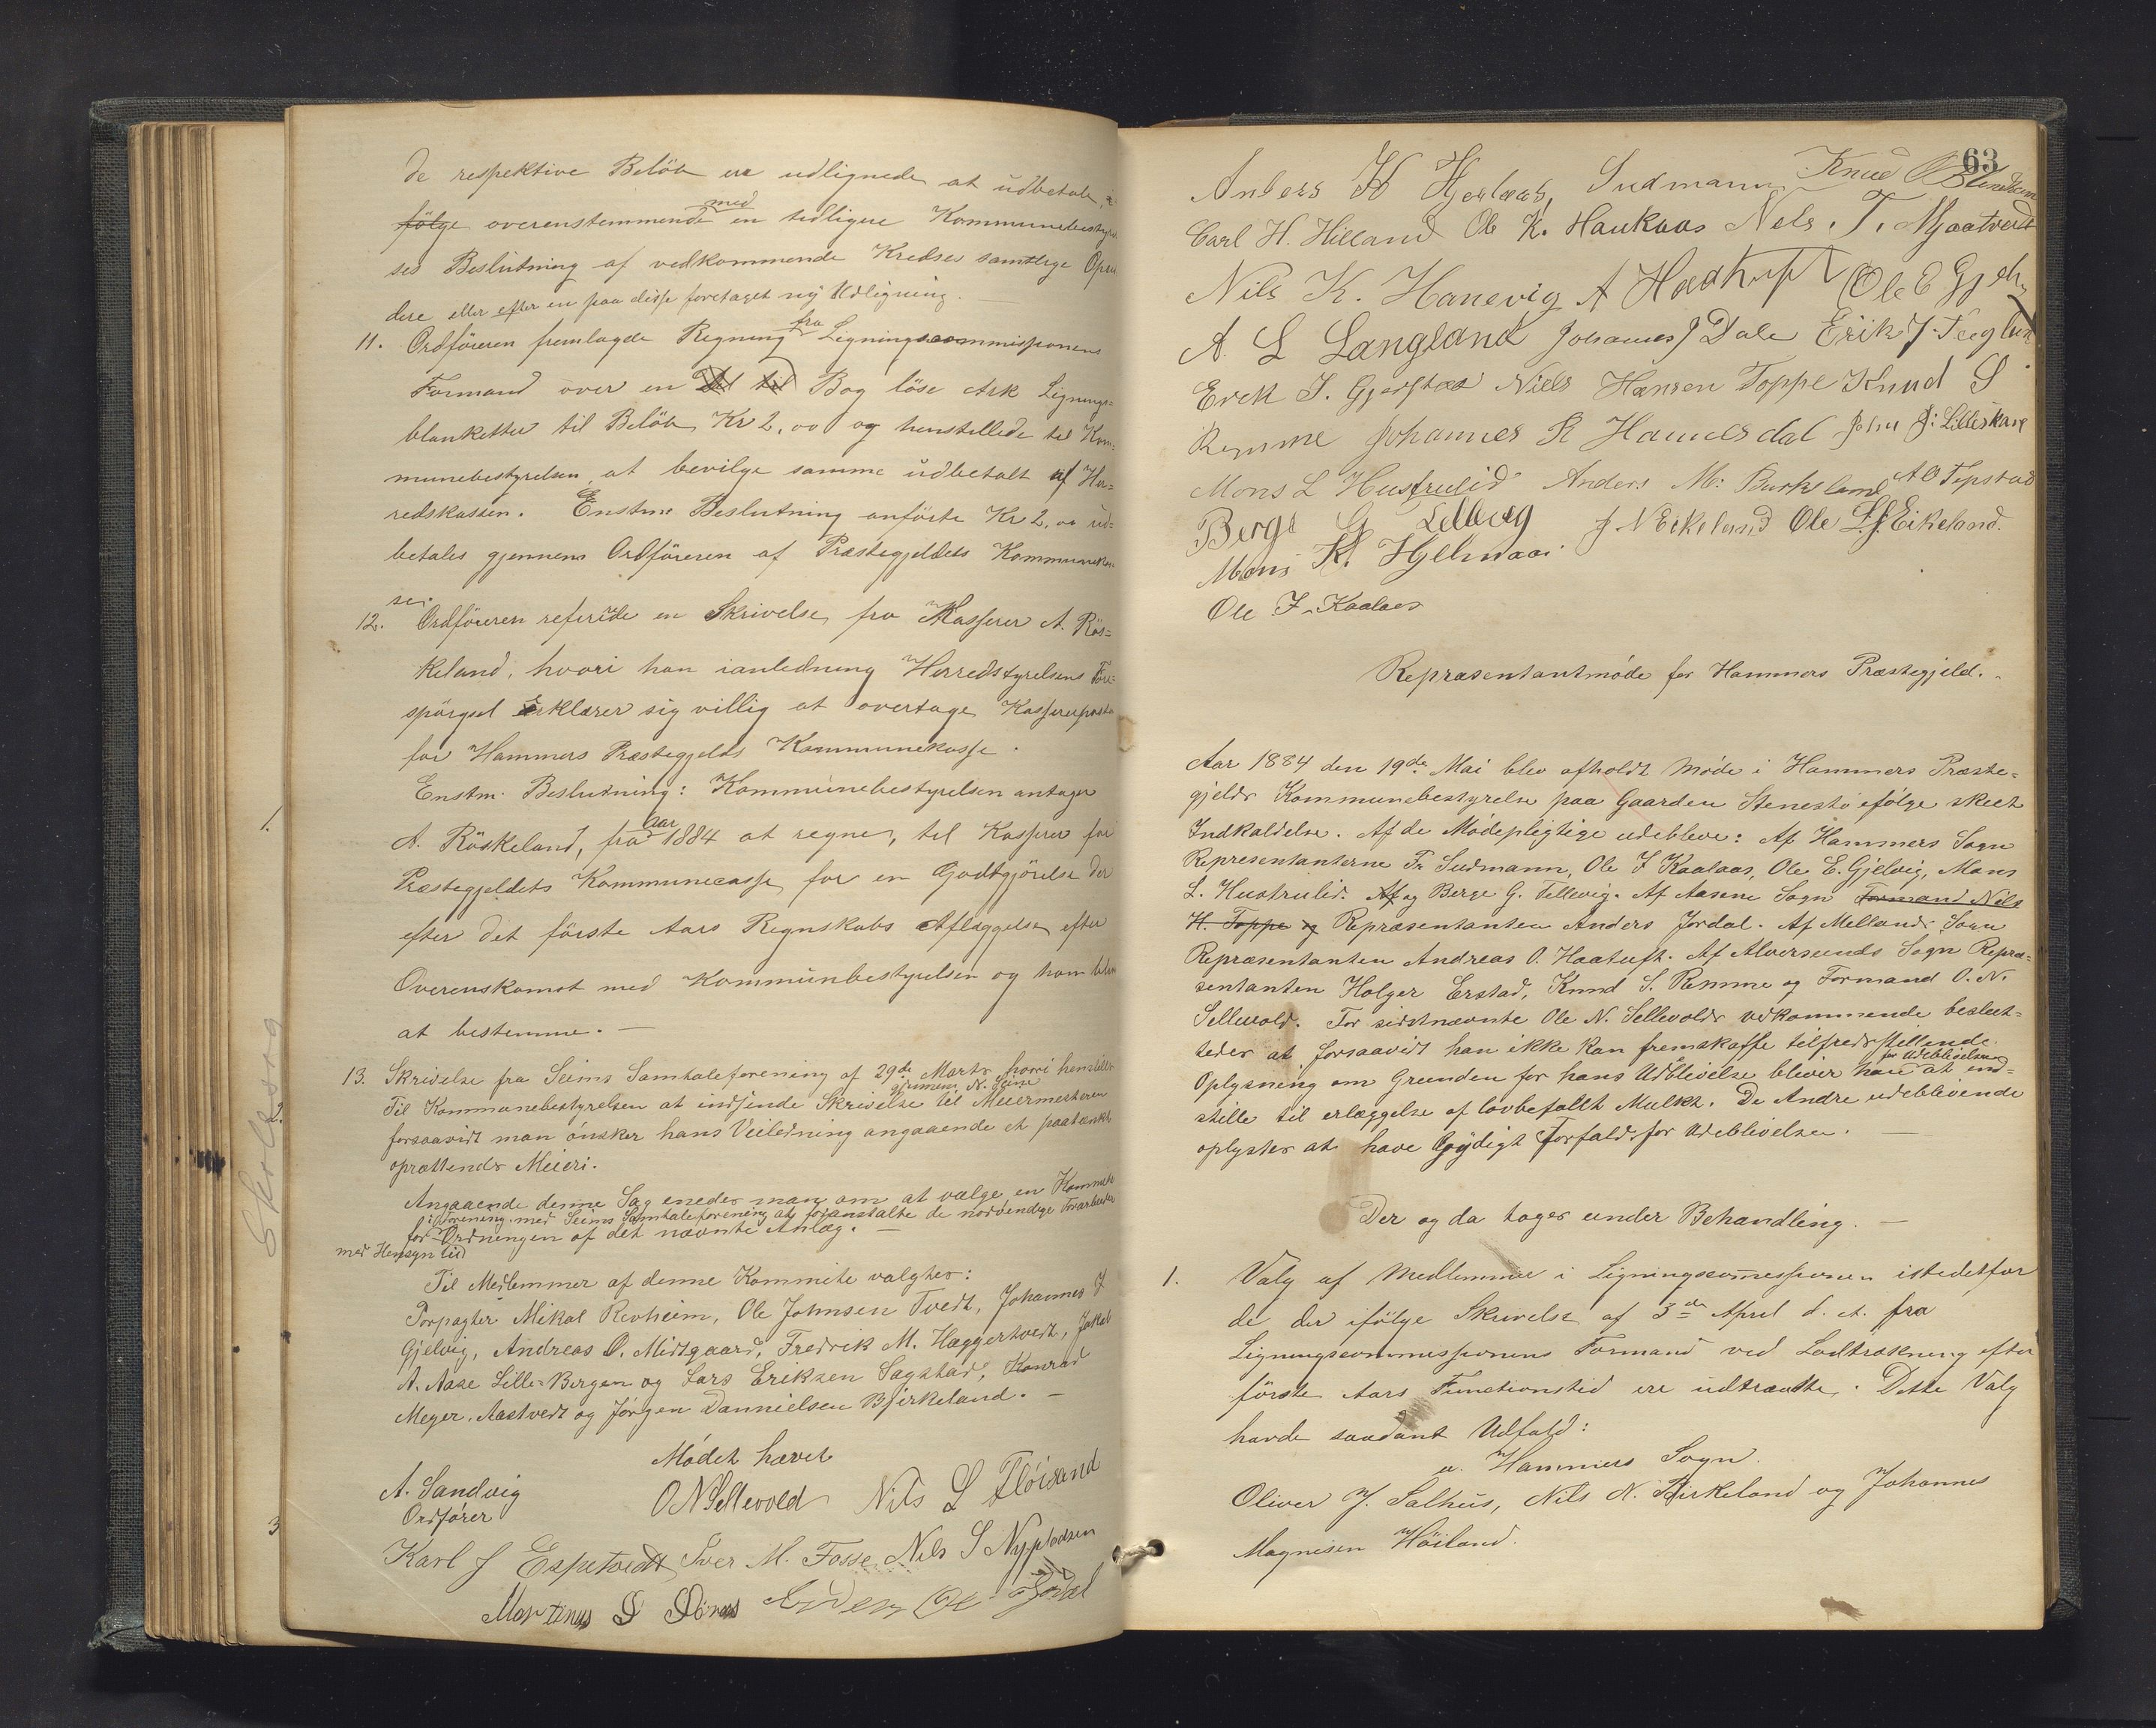 de respektive Beløb ere udlignede at udbetale, i-
følge overensstemmende med en tidligere Kommunebesty
ses Beslutning af vedkommende Kredses samtlige Opsi
dere eller efter en paa disse foretaget ny Udligning. —
11. Ordføreren fremlagde Regning fra Ligningscommissionens
Formand over en Bog løse Ark Lignings=
blanketter til Beløb Kr 2,00 og henstillede til Kom=
munebestyrelsen at bevilge samme udbetalt af Her=
redskassen. Enstm Beslutning anførte Kr 2,00 ud=
betales gjennem Ordføreren af Præstegjeldets Kommunekas
se.
12. Ordføreren refererede en Skrivelse fra Kasserer A. Røs=
keland, hvori han ianledning Herredstyrelsens Fore=
spørgsel erklærer sig villig at overtage Kassererposten
for Hammers Præstegjelds Kommunekasse.
Enstm. Beslutning: Kommunebestyrelsen antager
A. Røskeland, fra Aar 1884 at regne, til Kasserer for
Præstegjeldets Kommunecasse for en Godtgjørelse der
efter det første Aars Regnskabs Aflæggelse efter
Overenskomst med Kommunbestyrelsen og ham bliver
at bestemme. —
13. Skrivelse fra Seims Samtaleforening af 29de Marts hvori henstilles
Til Kommunebestyrelsen at indsende Skrivelse til Meiermesteren gjennem N. Seim
forsaavidt man ønsker hans Veiledning angaaende et paatænkt
oprættende Meieri.
Angaaende denne Sag enedes man om at vælge en Kommite
i Forening med Seims Samtaleforening at foranstalte de nødvendige Forarbeider
for Ordningen af det nævnte Anlæg. —
med Hensyn til
Til Medlemmer af denne Kommite valgtes:
Forpagter Mikal Revheim, Ole Johnsen Tvedt, Johannes J
Gjelvig, Andreas O. Midtgaard, Fredrik M. Haggertvedt, Jakob
A. Aase Lille=Bergen og Lars Eriksen Sagstad, Konrad
Meyer. Aastvedt og Jørgen Dannielsen Bjirkeland. —
Mødet hævet
A. Sandvig
Ordfører
O N Sellevold Nils L Fløisand
Karl J Espetvedt Iver M. Fosse Nils S
Martinus
1.
2.
3
Skolesag
63
Anders H Hjertaas, Sudmann Knud
Carl H. Hilland Ole K. Haukaas Nels. T. Mjaatvedt
Nils K. Hanevig A Haatuft Ole E Gjelvig
A. L Langeland Johannes J Dale Erik J.
Erek J. Gjerstad Niels Hansen Toppe Knud S
Remme Johannes R Hamersdal John J: Lilleskare
Mons L Hustrulid Anders M: Burkeland A O Tepstad
Berge G Tellevig J N Eikeland Ole L. J. Eikeland.
Mons K. Hjelmaas
Ole J. Kaalaas
Repræsentantmøde for Hammers Præstegjeld. -
Aar 1884 den 19de Mai blev afholdt Møde i Hammers Præste=
gjelds Kommunebestyrelse paa Gaarden Stenestø ifølge skeet
Indkaldelse. Af de Mødepligtige udebleve: Af Hammers Sogn
Representanterne Fr Sudmann, Ole J Kaalaas, Ole E. Gjelvig, Mons
L. Hustrulid. Af og Berge G. Tellevig. Af Aasene Sogn Formand Nils
H. Toppe og Repræsentanten Anders Jordal. Af Mellands Sogn
Repræsentanten Andreas O. Haatuft. Af Alversunds Sogn Repræ=
sentanten Holger Erstad, Knud S. Remme og Formand O. N.
Sellevold. For sidstnævnte Ole N. Sellevolds vedkommende beslut=
tedes at forsaavidt han ikke kan fremskaffe tilfredsstillende
Oplysning om Grunden for hans Udblivelse bliver han for Udeblivelsen at ind=
stille til erlæggelse af lovbefallt Mulkt. De Andre udeblivende
oplystes at have Gyldigt Forfald for Udeblivelsen. —
Der og da toges under Behandling. —
1. Valg af Medlemmer i Ligningscommissionen istedetfor
de der ifølge Skrivelse af 3de April d. A. fra
Ligningscommissionens Formand ved Lodtrækning efter
første Aars Functionstid ere udtraadte. Dette Valg
havde saadant Udfald:
a. Hammers Sogn.
Oliver J. Salhus, Nils N. Birkeland og Johannes
Magnesen Høiland.